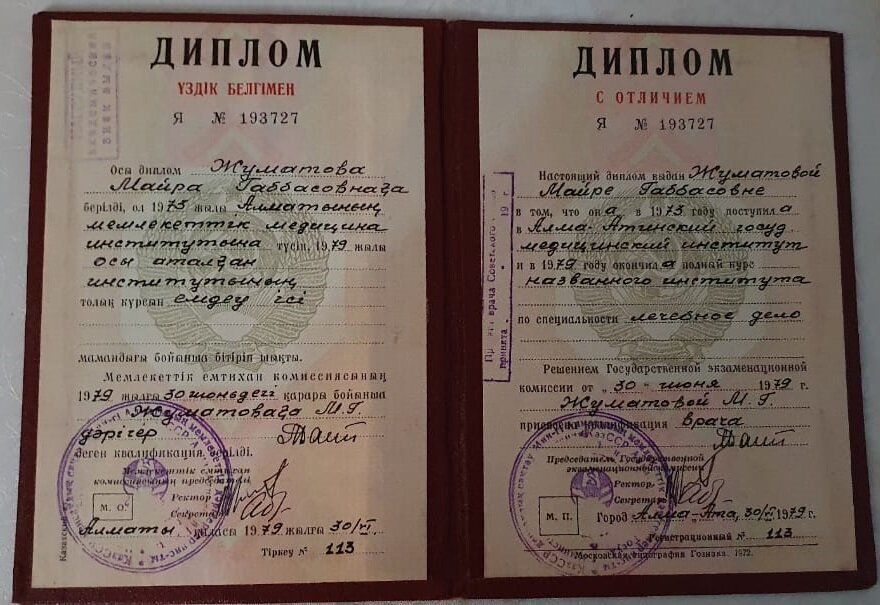 ДИПЛОМ
ҮЗДІК БЕЛГІМЕН
Я № 193727
Осы диплом Жуматова
Майра Габбасовнаға
берілді, ол 1973 жылы Алматының
мемлекеттік медицина
институтына түсіп, 1979 жылы
осы аталған
институтының
толық курсын емдеу ісі
мамандығы бойынша бітіріп шықты.
Мемлекеттік емтихан комиссиясының
1979 жылғы 30 июньдегі қарары бойынша
Жуматоваға М.Г
дәрігер
деген квалификация берілді.
Мемлекеттік емтихан
комиссиясының председателі
Ректор
Секретарь
М. О.
Алматы қаласы 1979 жылғы 30/VI
Тіркеу № 113
ДИПЛОМ
С ОТЛИЧИЕМ
Я № 193727
Настоящий диплом выдан Жуматовой
Майре Габбасовне
в том, что она в 1973 году поступила
в Алма-Атинский госуд
медицинский институт
и в 1979 году окончила полный курс
названного института
по специальности лечебное дело
Решением Государственной экзаменационной
комиссии от „30" июня 1979 г.
Жуматовой М. Г
присвоена квалификация врача
Председатель Государственной
экзаменационной комиссии
Ректор
Секретарь
М. П.
Город Алма-Ата, 30/VI 1979 г.
Регистрационный № 113
Московская типография Гознака. 1972.
врача Советского
принята